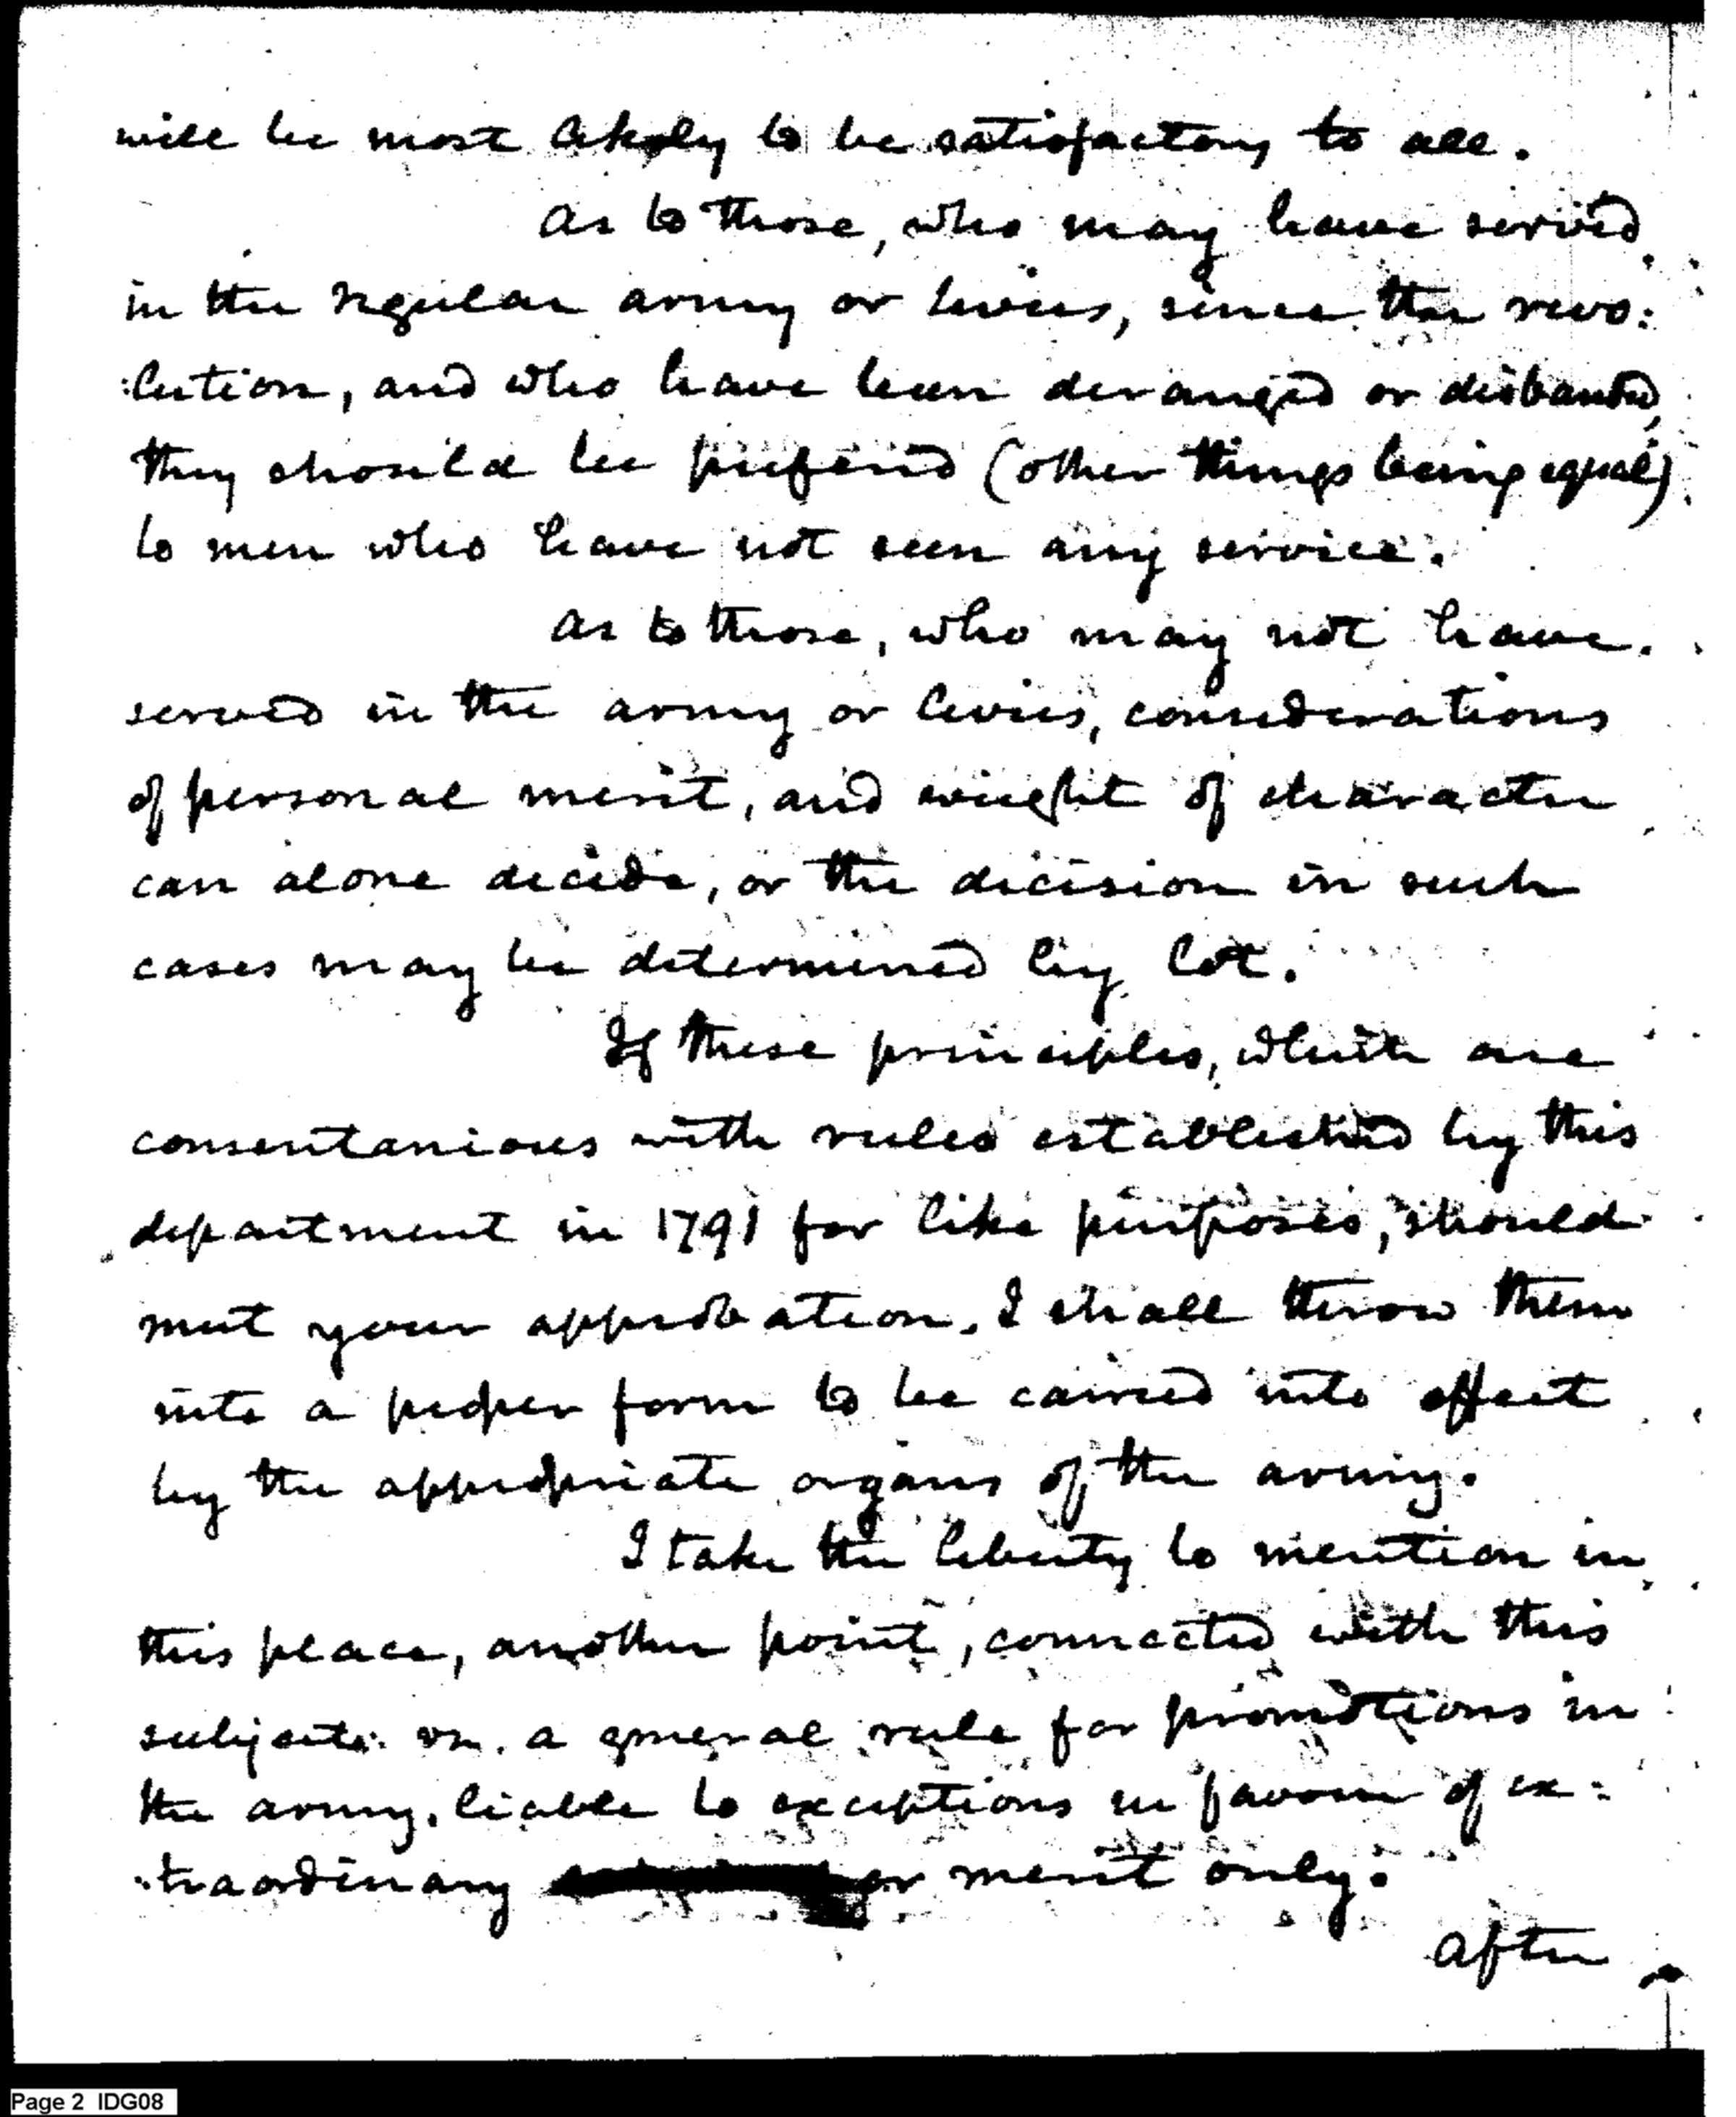 will be most likely to be satisfactory to all.
As to those, who may have served
in the regular army or levies, since the revo:
:lution, and who have been deranged or disbanded,
they should be preferred (other things being equal)
to men who have not seen any service.
As to those, who may not have
served in the army or levies, considerations
of personal merit, and weight of character
can alone decide, or the decision in such
cases may be determined by lot.
If these principles, which are
consentanious with rules established by this
department in 1791 for like purposes, should
meet your approbation, I shall throw them
into a proper form to be carried into effect
by the appropriate organs of the army.
I take the liberty to mention in
this place, another point, connected with this
subject: vz. a general rule for promotions in
the army, liable to exceptions in favour of ex:
:traordinary or merit only.
After
Page 2 IDG08